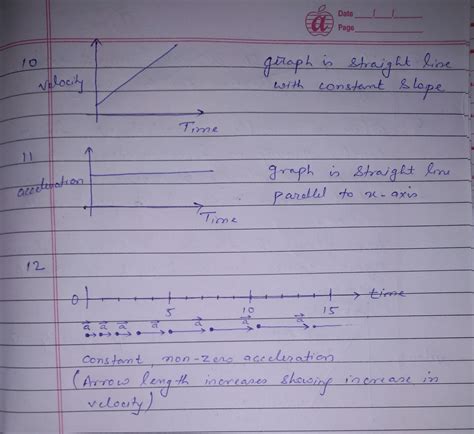 Date / /
a
Page
10
velocity
Time
graph is straight line
with constant slope
11
acceleration
Time
graph is straight line
parallel to x-axis
12
0 5 10 15 time
a a a a a a a
constant, non-zero acceleration
(Arrow length increases showing increase in
velocity)